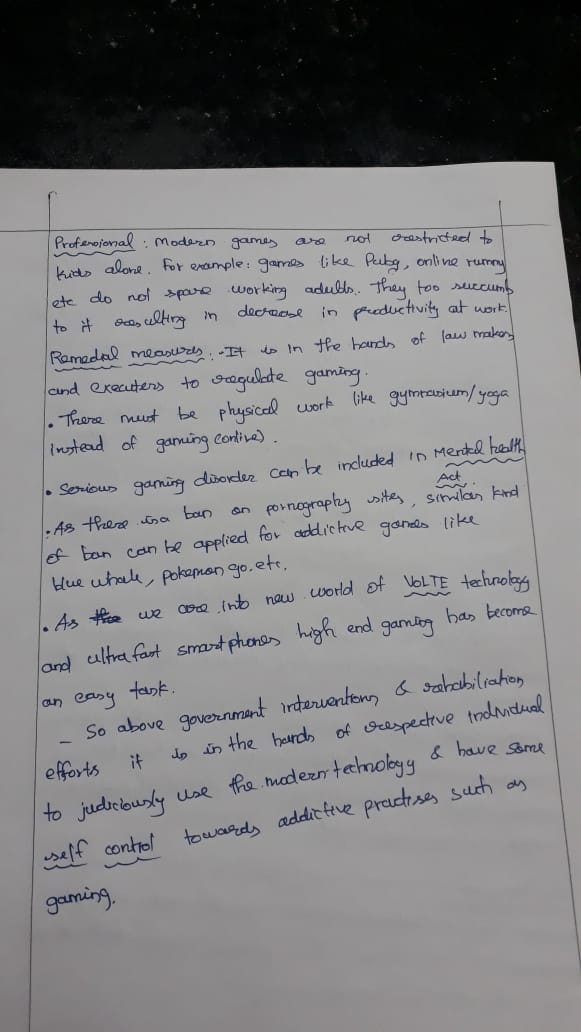 Professional : Modern games are not restricted to
kids alone. For example: games like Pubg, online rummy
etc do not spare working adults. They too succumb
to it resulting in decrease in productivity at work.
Remedial measures : - It is in the hands of law makers
and executers to regulate gaming.
• There must be physical work like gymnasium/yoga
instead of gaming (online).
• Serious gaming disorder can be included in Mental health
Act.
• As there is a ban on pornography sites, similar kind
of ban can be applied for addictive games like
blue whale, pokemon go. etc.
• As we are into new world of VoLTE technology
and ultra fast smartphones high end gaming has become
an easy task.
– So above government interventions & rehabiliation
efforts it is in the hands of respective individual
to judiciously use the modern technology & have some
self control towards addictive practises such as
gaming.